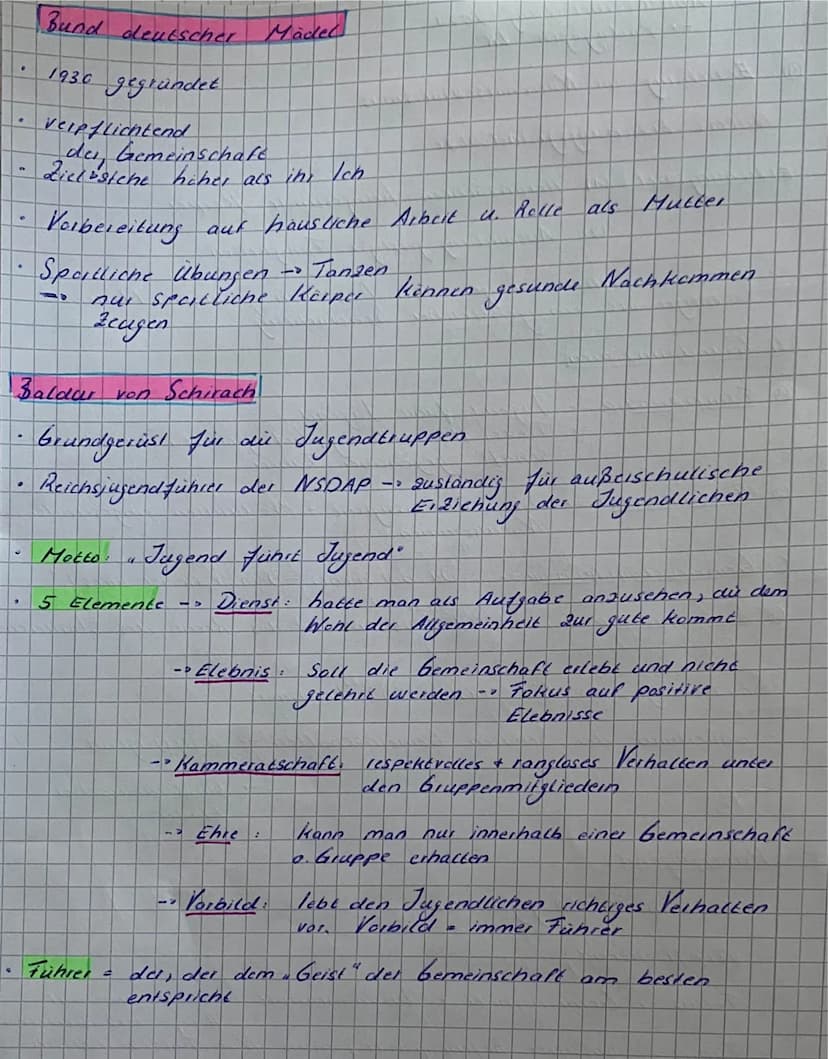 Bund deutscher Mädel
· 1930 gegründet
· verpflichtend
der Gemeinschaft
· Ziel stehe höher als ihr Ich
· Vorbereitung auf häusliche Arbeit u. Rolle als Mutter
· Sportliche Übungen -> Tanzen
-> nur sportliche Körper können gesunde Nachkommen
zeugen
Baldur von Schirach
· Grundgerüst für die Jugendtruppen
· Reichsjugendführer der NSDAP -> zuständig für außerschulische
Erziehung der Jugendlichen
· Motto: „Jugend führt Jugend"
· 5 Elemente -> Dienst: hatte man als Aufgabe anzusehen, die dem
Wohl der Allgemeinheit zur gute kommt
-> Elebnis: Soll die Gemeinschaft erlebt und nicht
gelehrt werden -> Fokus auf positive
Elebnisse
-> Kammeratschaft: respektvolles + rangloses Verhalten unter
den Gruppenmitgliedern
-> Ehre: kann man nur innerhalb einer Gemeinschaft
o. Gruppe erhalten
-> Vorbild: lebt den Jugendlichen richtiges Verhalten
vor. Vorbild = immer Führer
· Führer = der, der dem „Geist" der Gemeinschaft am besten
entspricht